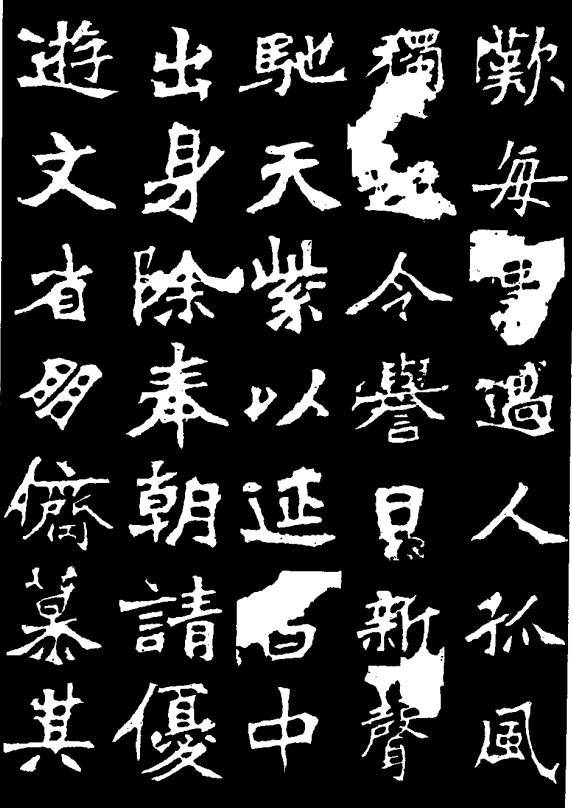 歎每事過人孤風
獨令譽日新聲
馳天紫以延昌中
出身除奉朝請優
遊文省朋儕慕其